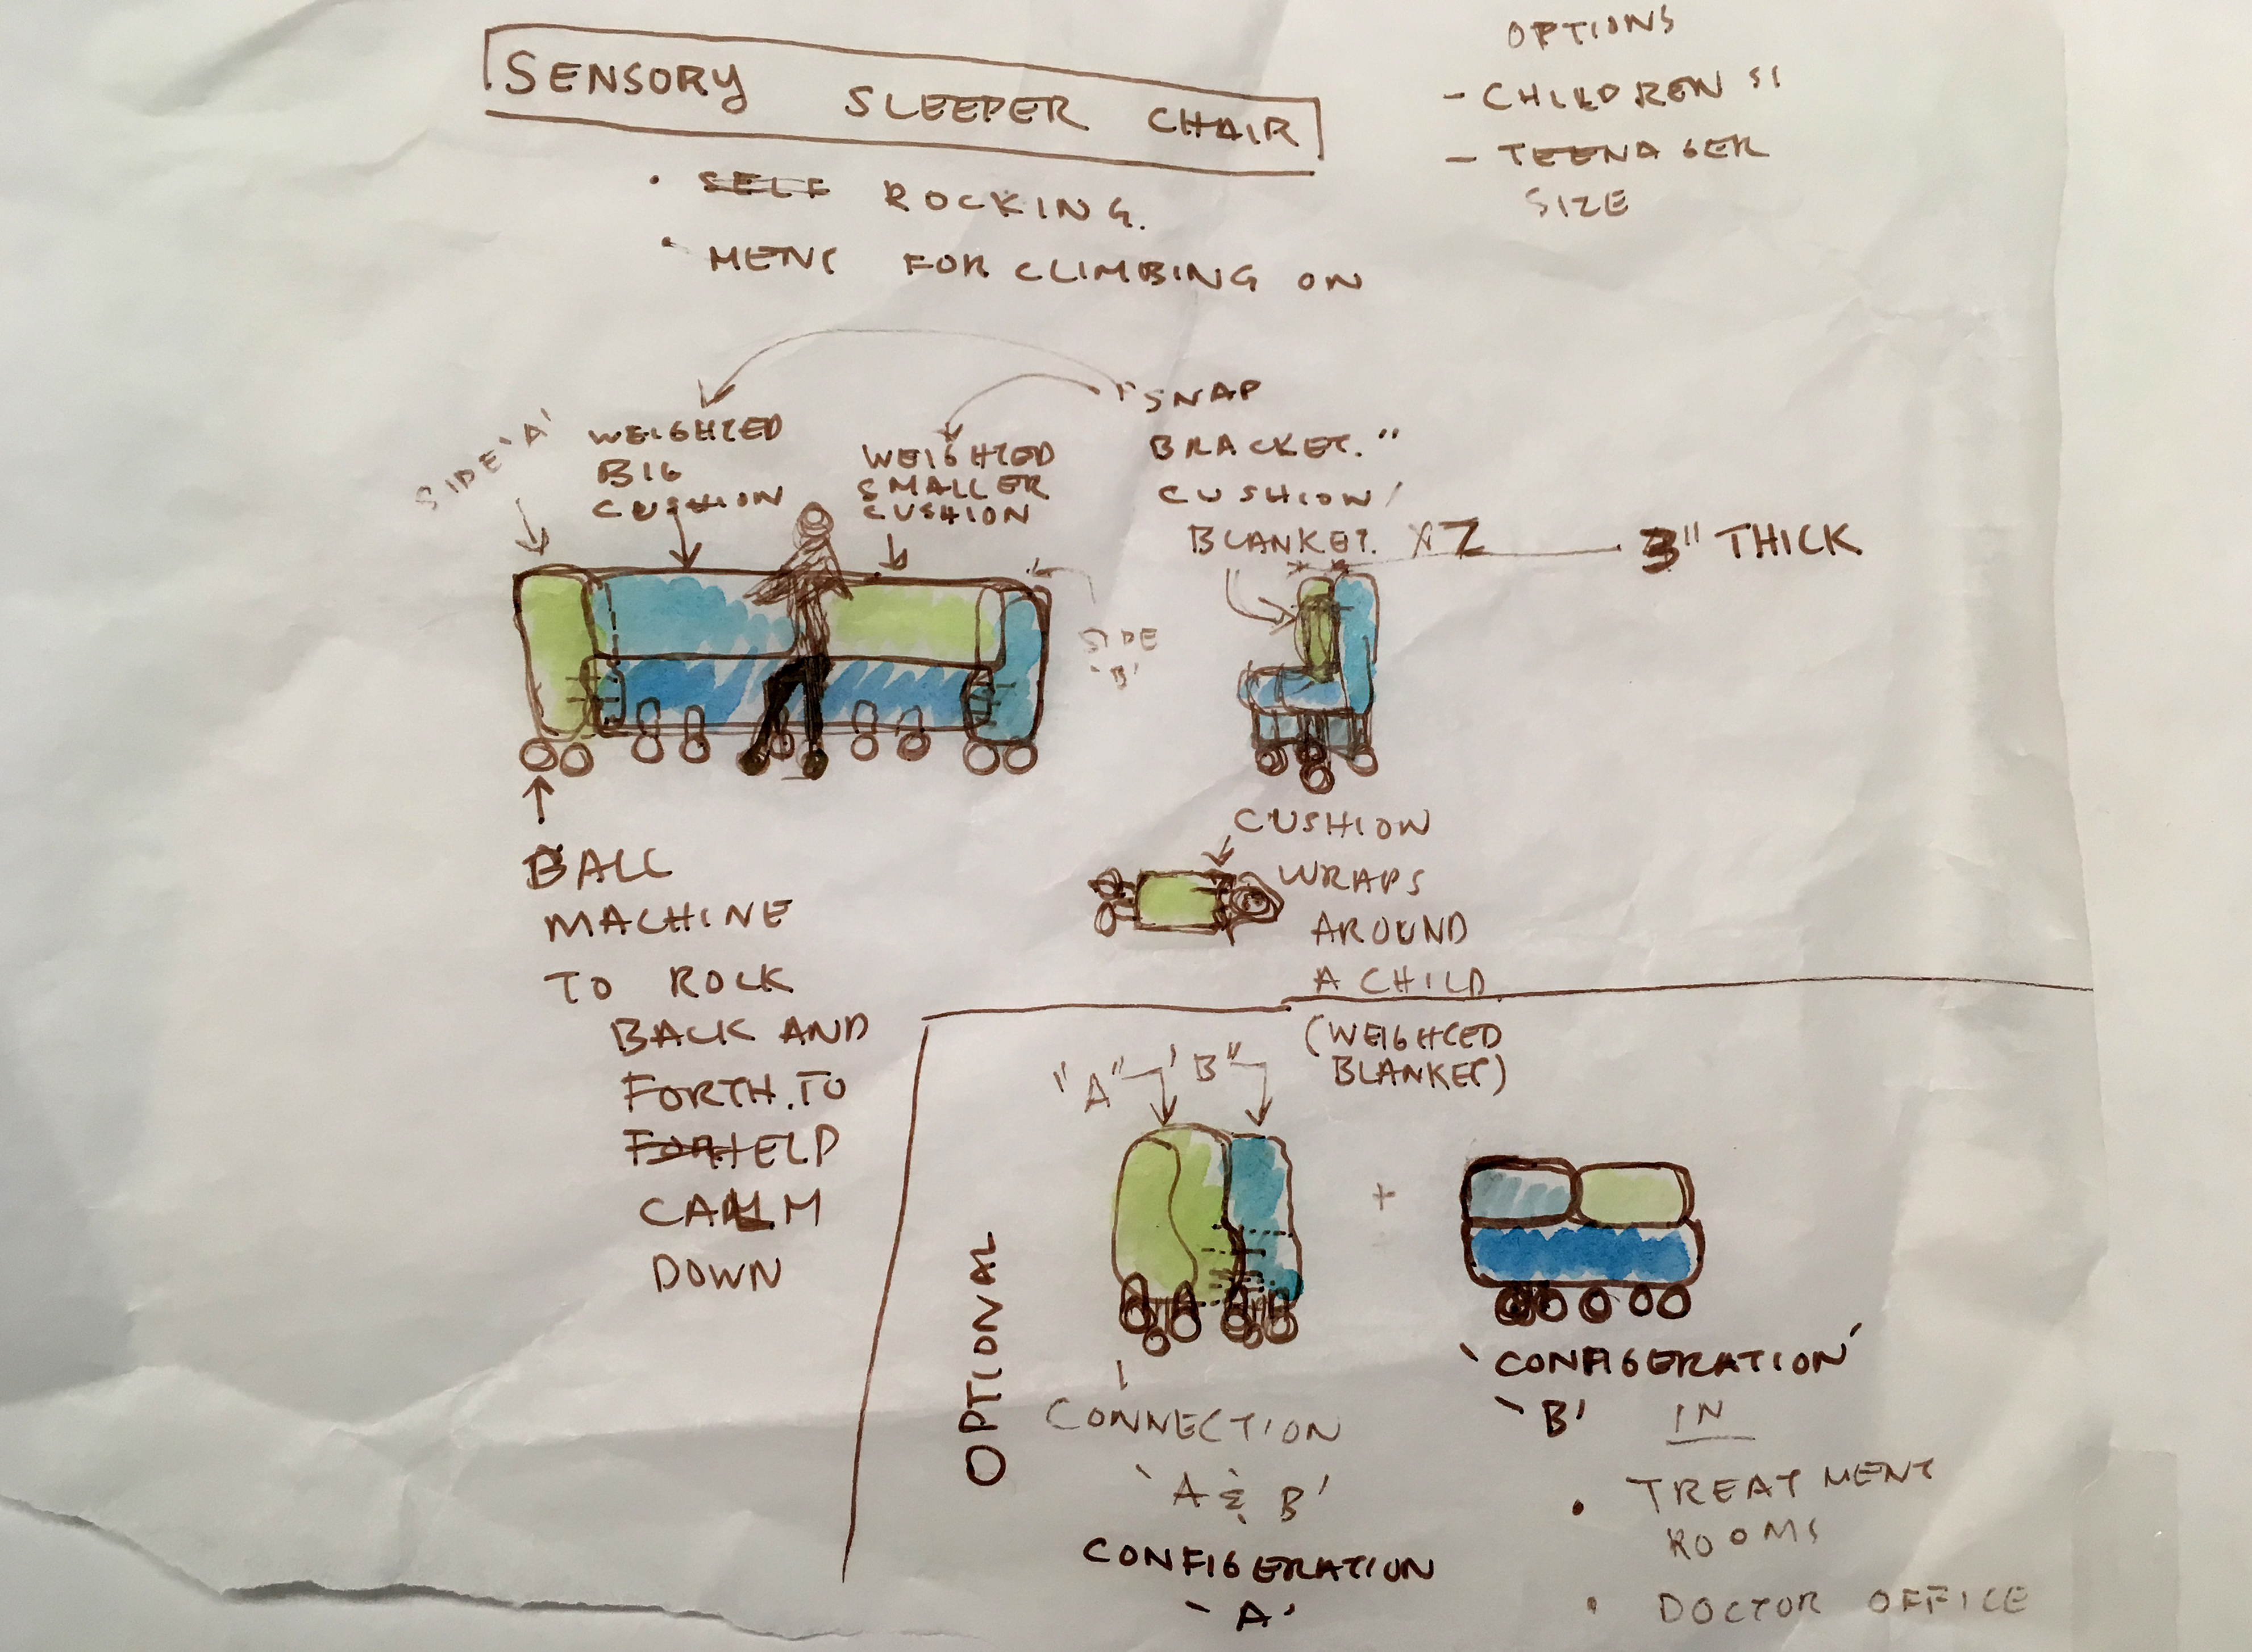 SENSORY SLEEPER CHAIR
• SELF ROCKING.
• MENT FOR CLIMBING ON
OPTIONS
- CHILDREN SI
- TEENAGER
SIZE
SIDE 'A'
WEIGHTED
BIG
CUSHION
WEIGHTED
SMALLER
CUSHION
"SNAP
BRACKET."
CUSHION/
BLANKET. X2
3" THICK
SIDE
'B'
BALL
MACHINE
TO ROCK
BACK AND
FORTH. TO
HELP
CALM
DOWN
CUSHION
WRAPS
AROUND
A CHILD
(WEIGHTED
BLANKET)
OPTIONAL
"A" 'B"
+
CONNECTION
'A & B'
CONFIGERATION
'A'
'CONFIGERATION'
'B' IN
• TREATMENT
ROOMS
• DOCTOR OFFICE